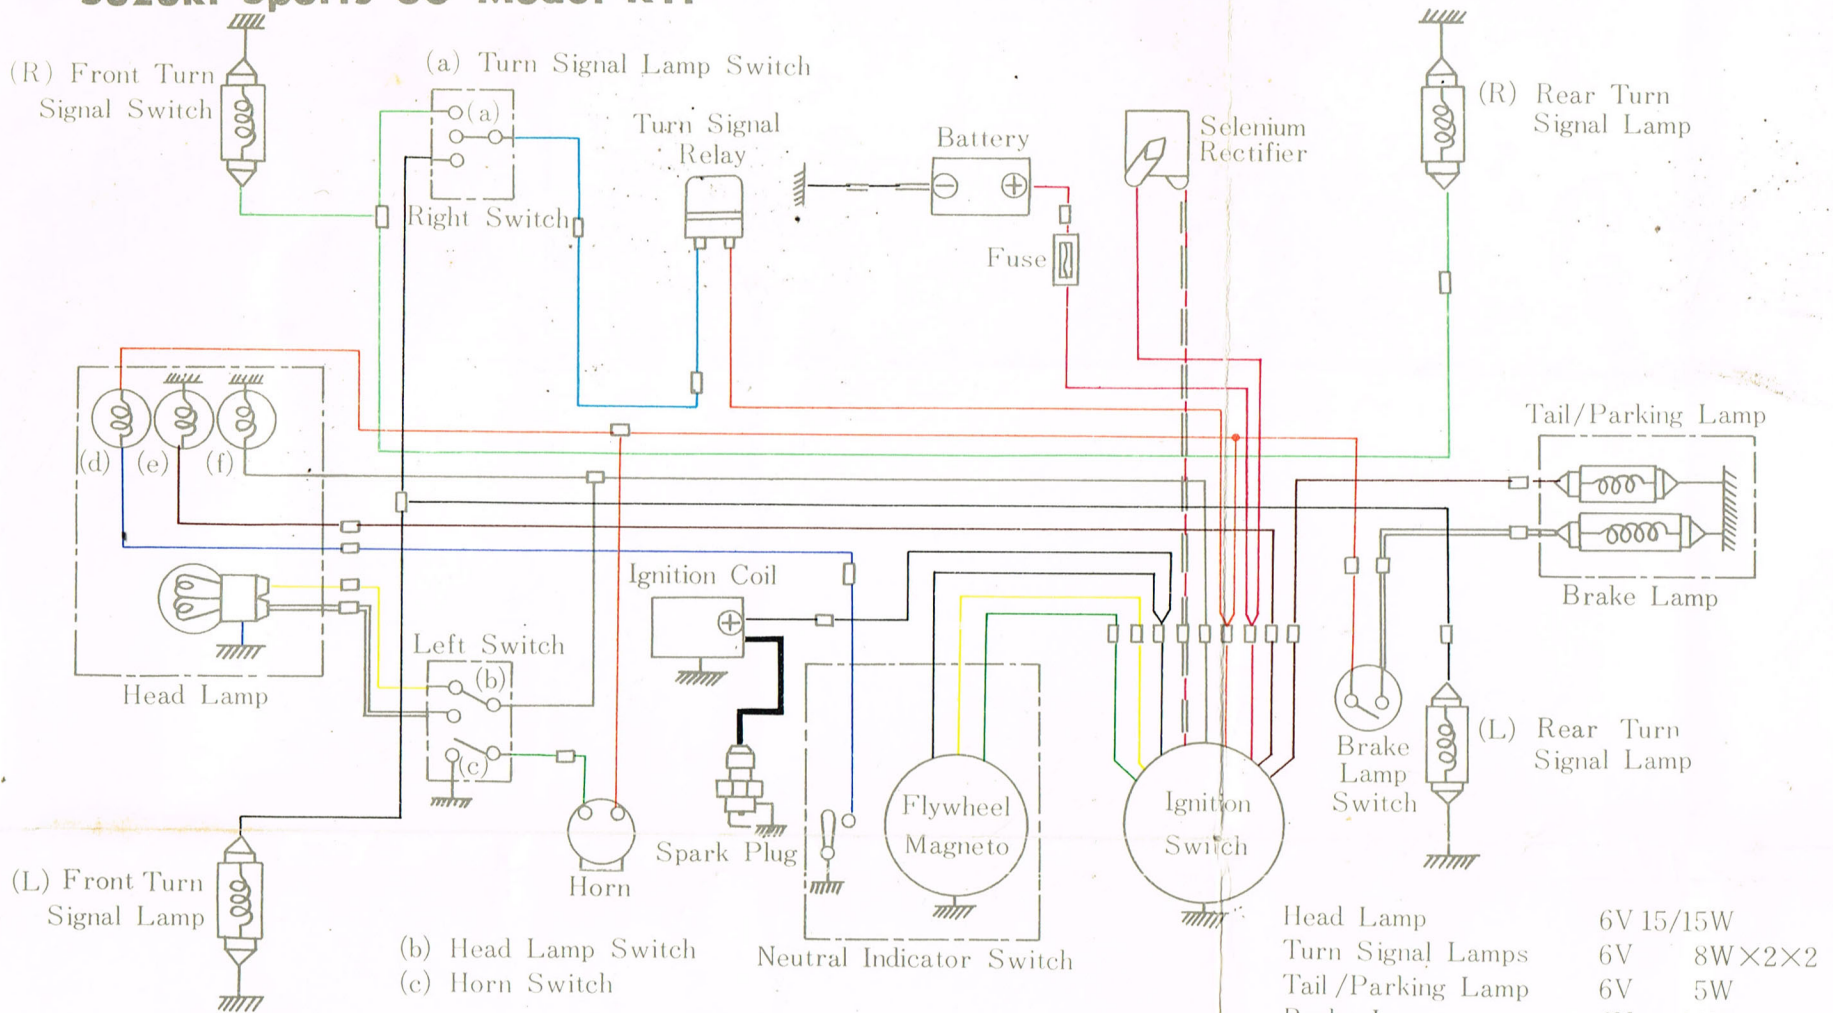 (R) Front Turn
Signal Switch
(a) Turn Signal Lamp Switch
(a)
Right Switch
Turn Signal
Relay
Battery
Fuse
Selenium
Rectifier
(R) Rear Turn
Signal Lamp
(d) (e) (f)
Head Lamp
Tail/Parking Lamp
Brake Lamp
Ignition Coil
Left Switch
(b)
(c)
Horn
Spark Plug
Flywheel
Magneto
Neutral Indicator Switch
Ignition
Switch
Brake
Lamp
Switch
(L) Rear Turn
Signal Lamp
(L) Front Turn
Signal Lamp
(b) Head Lamp Switch
(c) Horn Switch
Head Lamp 6V 15/15W
Turn Signal Lamps 6V 8W×2×2
Tail/Parking Lamp 6V 5W